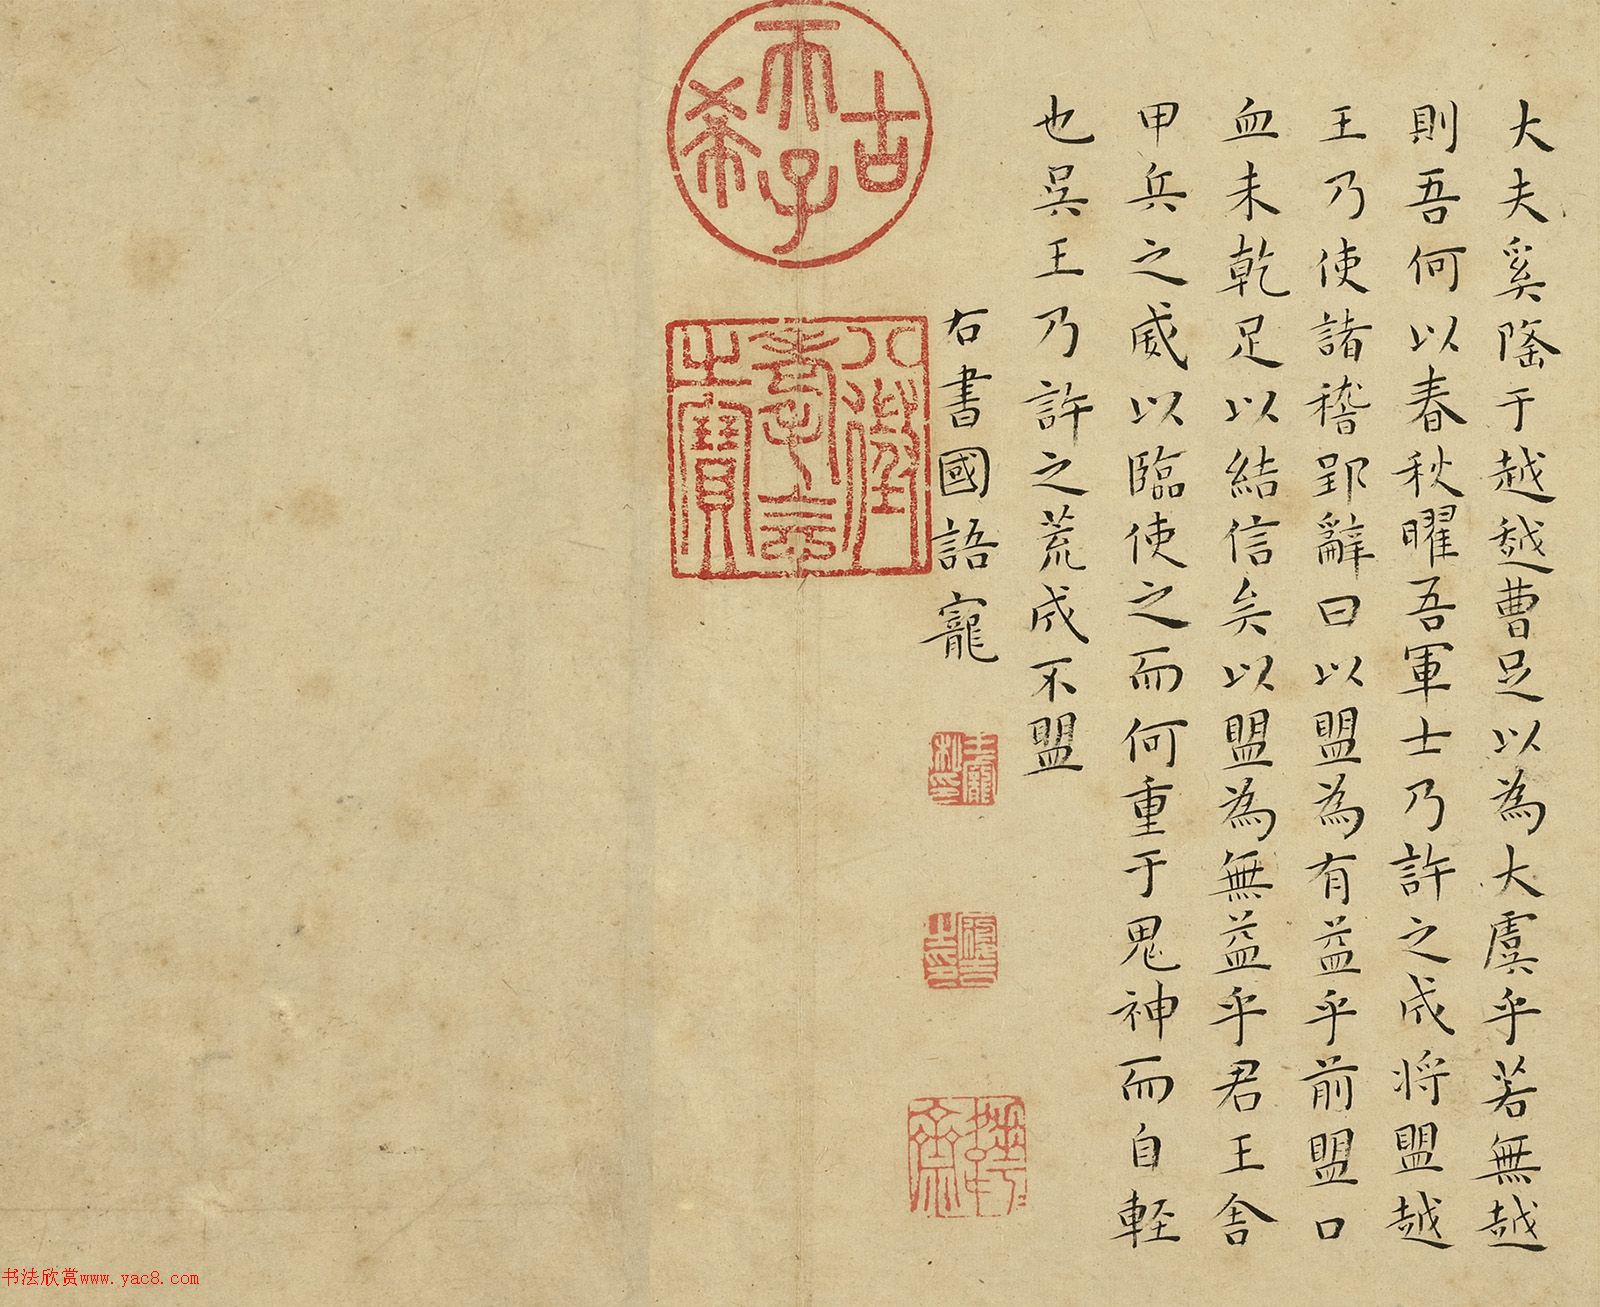 大夫奚隆于越越曹足以為大虞乎若無越
則吾何以春秋曜吾軍士乃許之成將盟越
王乃使諸稽郢辭曰以盟為有益乎前盟口
血未乾足以結信矣以盟為無益乎君王舍
甲兵之威以臨使之而何重于鬼神而自輕
也吳王乃許之荒成不盟
右書國語寵
王寵私印
履吉之印
古希天子
八徵耄念之寶
书法欣赏www.yac8.com